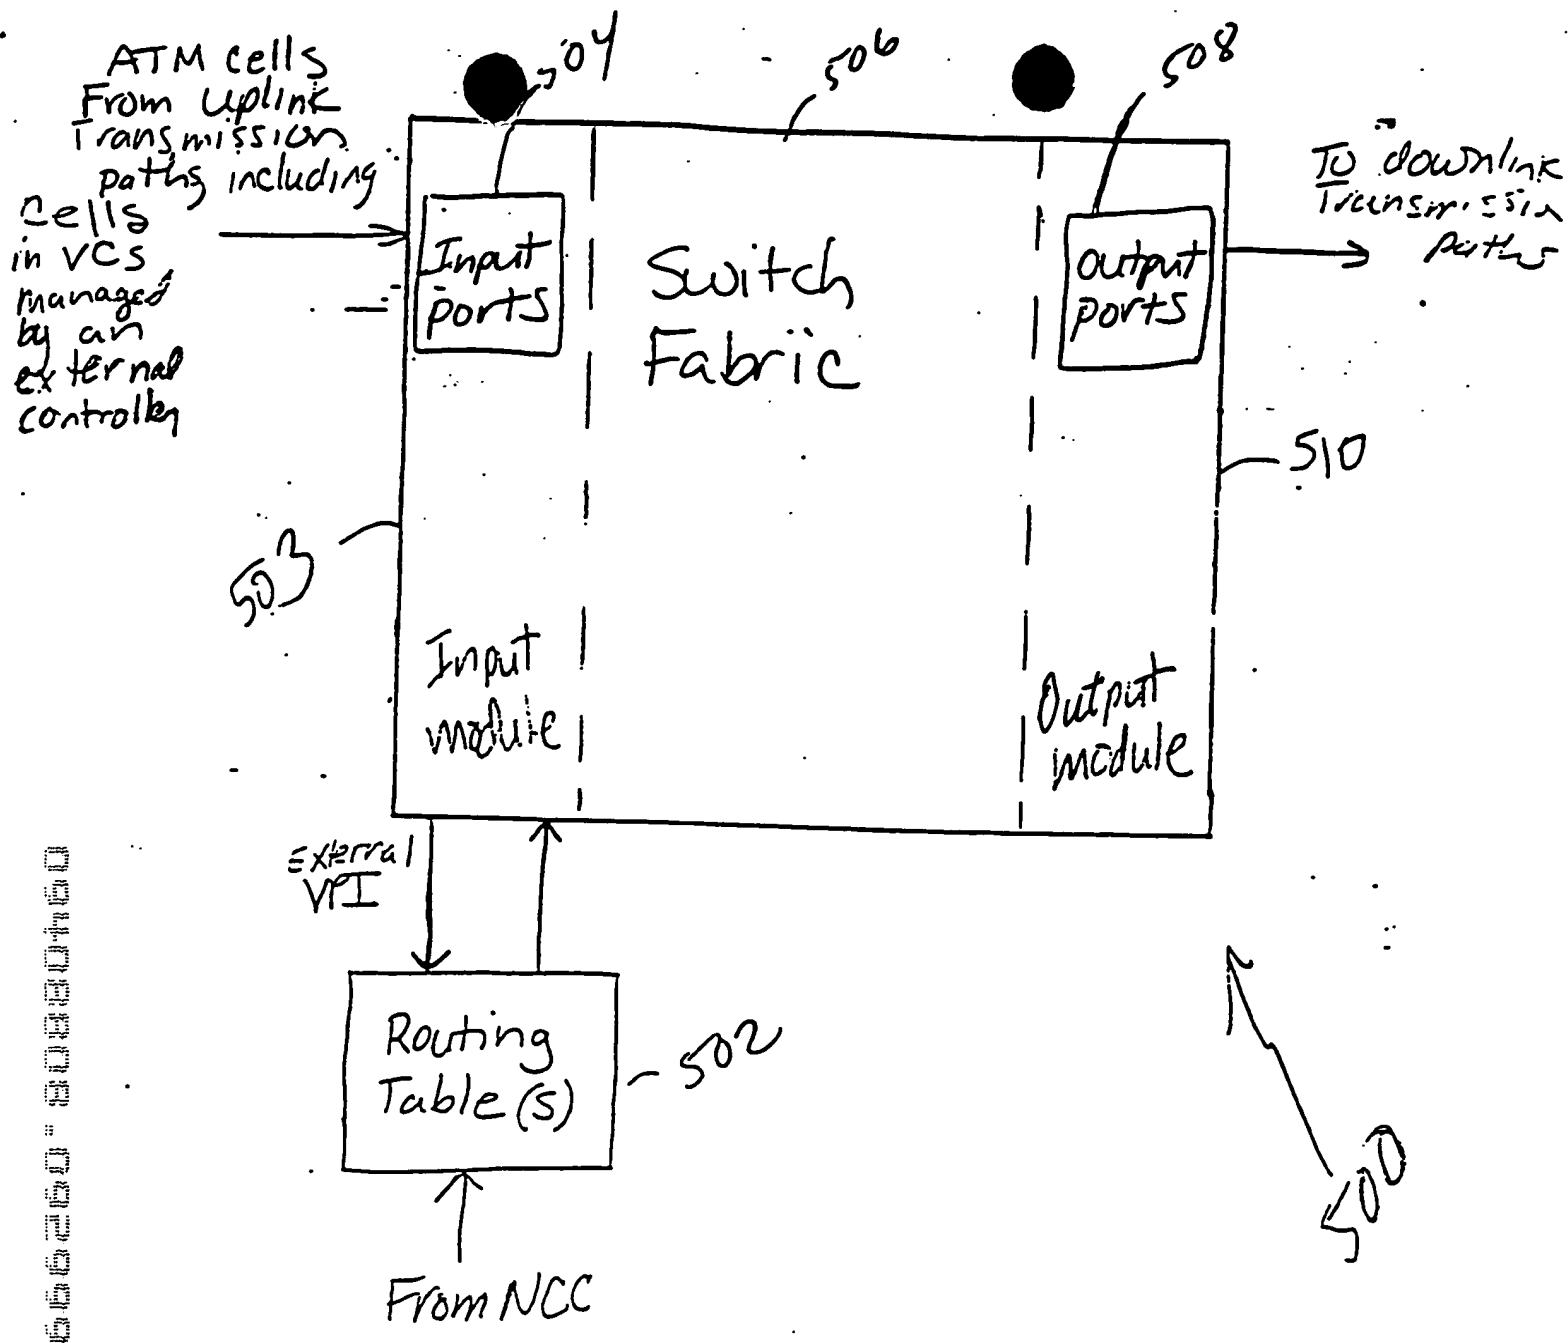 ATM cells
From uplink
Transmission
paths including
cells
in VCs
managed
by an
external
controller
504
506
508
To downlink
Transmission
paths
Input
ports
Switch
Fabric
Output
ports
510
503
Input
module
Output
module
External
VPI
Routing
Table(s)
502
From NCC
500